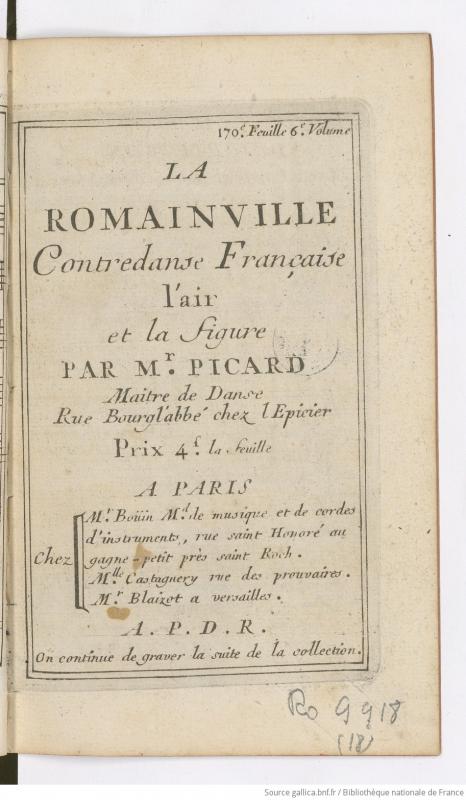 170.e Feuille 6.e Volume
LA
ROMAINVILLE
Contredanse Française
l'air
et la figure
PAR M.r PICARD
Maitre de Danse
Rue Bourglabbé chez l'Epicier
Prix 4.f la feuille
A PARIS
Chez
M.r Boüin M.d de musique et de cordes
d'instruments, rue saint Honoré au
gagne-petit près saint Roch.
M.lle Castagnery rue des prouvaires.
M.r Blaizot a versailles.
A. P. D. R.
On continue de graver la suite de la collection.
Ro 9918
(18)
Source gallica.bnf.fr / Bibliothèque nationale de France